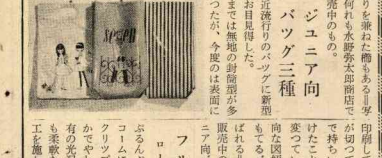 りを兼ねた櫛もある＝写
何れも水野弥太郎商店で
売中のもの。
ジュニア向
バッグ三種
近流行りのバッグに新型
お目見得した。
までは無地の封筒型が多
つたが、今度のは表面に
印刷し
が切つて
で持ち
けたと
変つて
向な図柄
もてる
ばれる
販売中
ニア向
フル
ロー
ぷるん
コームに
クリップ
かでや
有の光
も柔軟
工を施